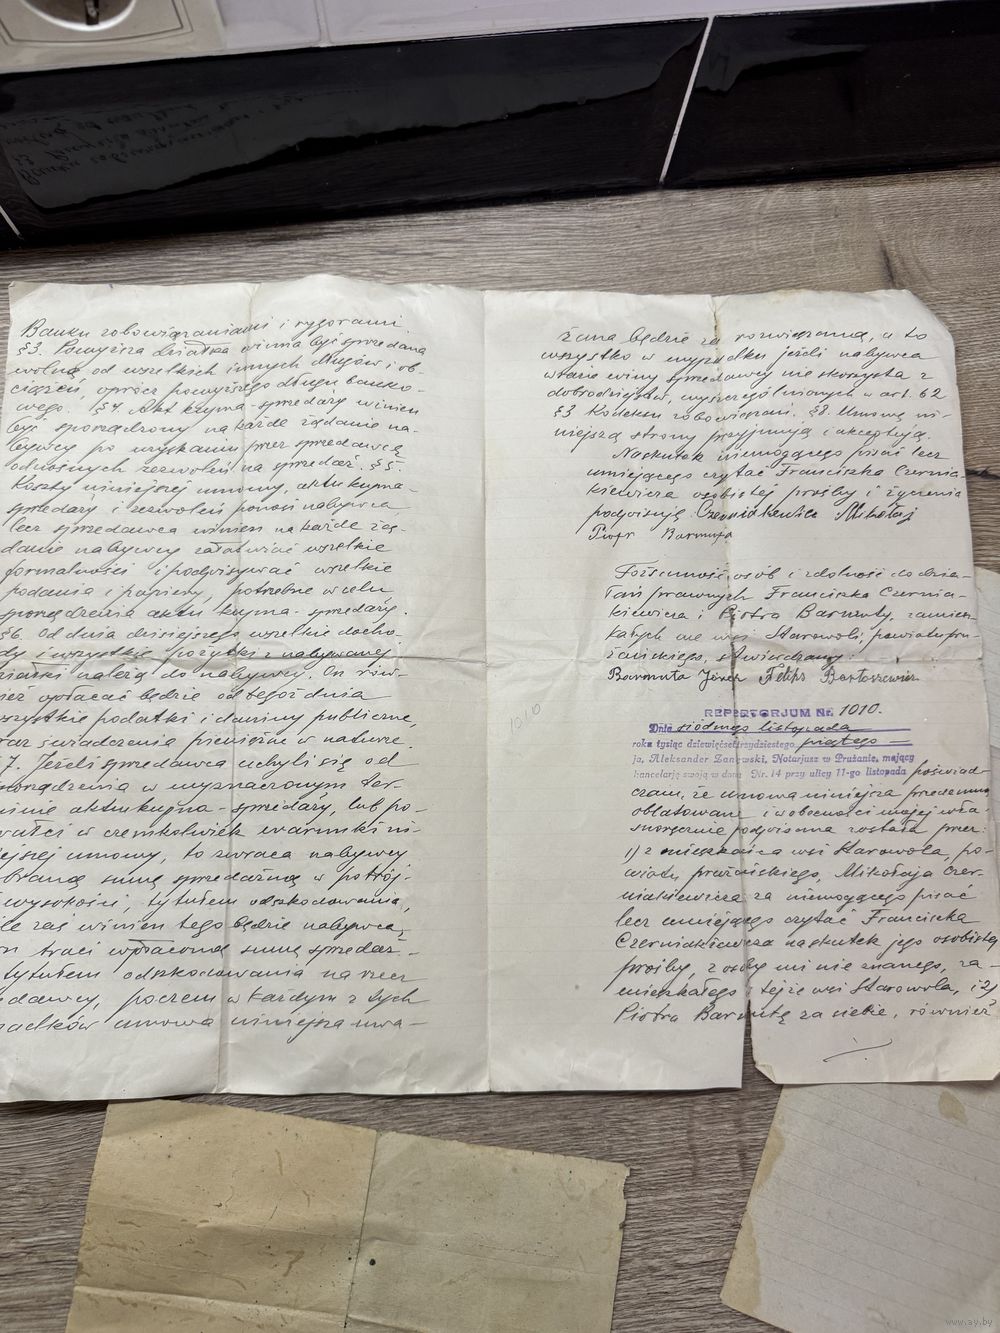 Banku zobowiązaniami i rygorami.
§3. Powyższa działka winna być sprzedana
wolną od wszelkich innych długów i ob-
ciążeń, oprócz powyższego długu banko-
wego. §4. Akt kupna-sprzedaży winien
być sporządzony na każde żądanie na-
bywcy po uzyskaniu przez sprzedawcę
odnośnych zezwoleń na sprzedaż. §5.
Koszty niniejszej umowy, aktu kupna-
sprzedaży i zezwoleń ponosi nabywca,
lecz sprzedawca winien na każde żą-
danie nabywcy załatwiać wszelkie
formalności i podpisywać wszelkie
podania i papiery, potrzebne w celu
sporządzenia aktu kupna-sprzedaży.
§6. Od dnia dzisiejszego wszelkie docho-
dy i wszystkie pożytki z nabywanej
działki należą do nabywcy. On rów-
nież opłacać będzie od tegoż dnia
wszystkie podatki i daniny publiczne,
oraz świadczenia pieniężne w naturze.
7. Jeżeli sprzedawca uchyli się od
sporządzenia w wyznaczonym ter-
minie aktu kupna-sprzedaży, lub po-
w czemkolwiek warunki ni-
ejszej umowy, to zwraca nabywcy
braną sumę sprzedażną w potrój-
wysokości, tytułem odszkodowania,
le zaś winien tego będzie nabywca,
on traci wpłaconą sumę sprzedaż-
tytułem odszkodowania na rzecz
dawcy, poczem w każdym z tych
padków umowa niniejsza uwa-
żana będzie za rozwiązaną, a to
wszystko w wypadku jeżeli nabywca
w razie winy sprzedawcy nie skorzysta z
dobrodziejstw, wyszczególnionych w art. 62
§3 Kodeksu zobowiązań. §8. Umowę ni-
niejszą strony przyjmują i akceptują.
Naskutek niemogącego pisać lecz
umiejącego czytać Franciszka Czernia-
kiewicza osobistej prośby i życzenia
podpisuję Czerniakiewicz Mikołaj
Piotr Barmuta
Tożsamość osób i zdolność do dzia-
łań prawnych Franciszka Czernia-
kiewicza i Piotra Barmuty, zamiesz-
kałych we wsi Starowoli, powiatu pru-
żańskiego, stwierdzamy:
Barmuta Józef Feliks Bartoszewicz
REPERTORJUM Nr. 1010.
Dnia siódmego listopada
roku tysiąc dziewięćset trzydziestego piątego
ja, Aleksander Zanewski, Notarjusz w Prużanie, mający
kancelarję swoją w domu Nr. 14 przy ulicy 11-go listopada poświad-
czam, że umowa niniejsza przezemnie
oblatowana i w obecności mojej wła-
snoręcznie podpisana została przez:
1) z mieszkańca wsi Starowola, po-
wiatu prużańskiego, Mikołaja Czer-
niakiewicza za niemogącego pisać
lecz umiejącego czytać Franciszka
Czerniakiewicza naskutek jego osobistej
prośby, z osoby mi nie znanego, za-
mieszkałego w tejże wsi Starowola, i 2)
Piotra Barmutę za siebie, również
1010
www.ay.by